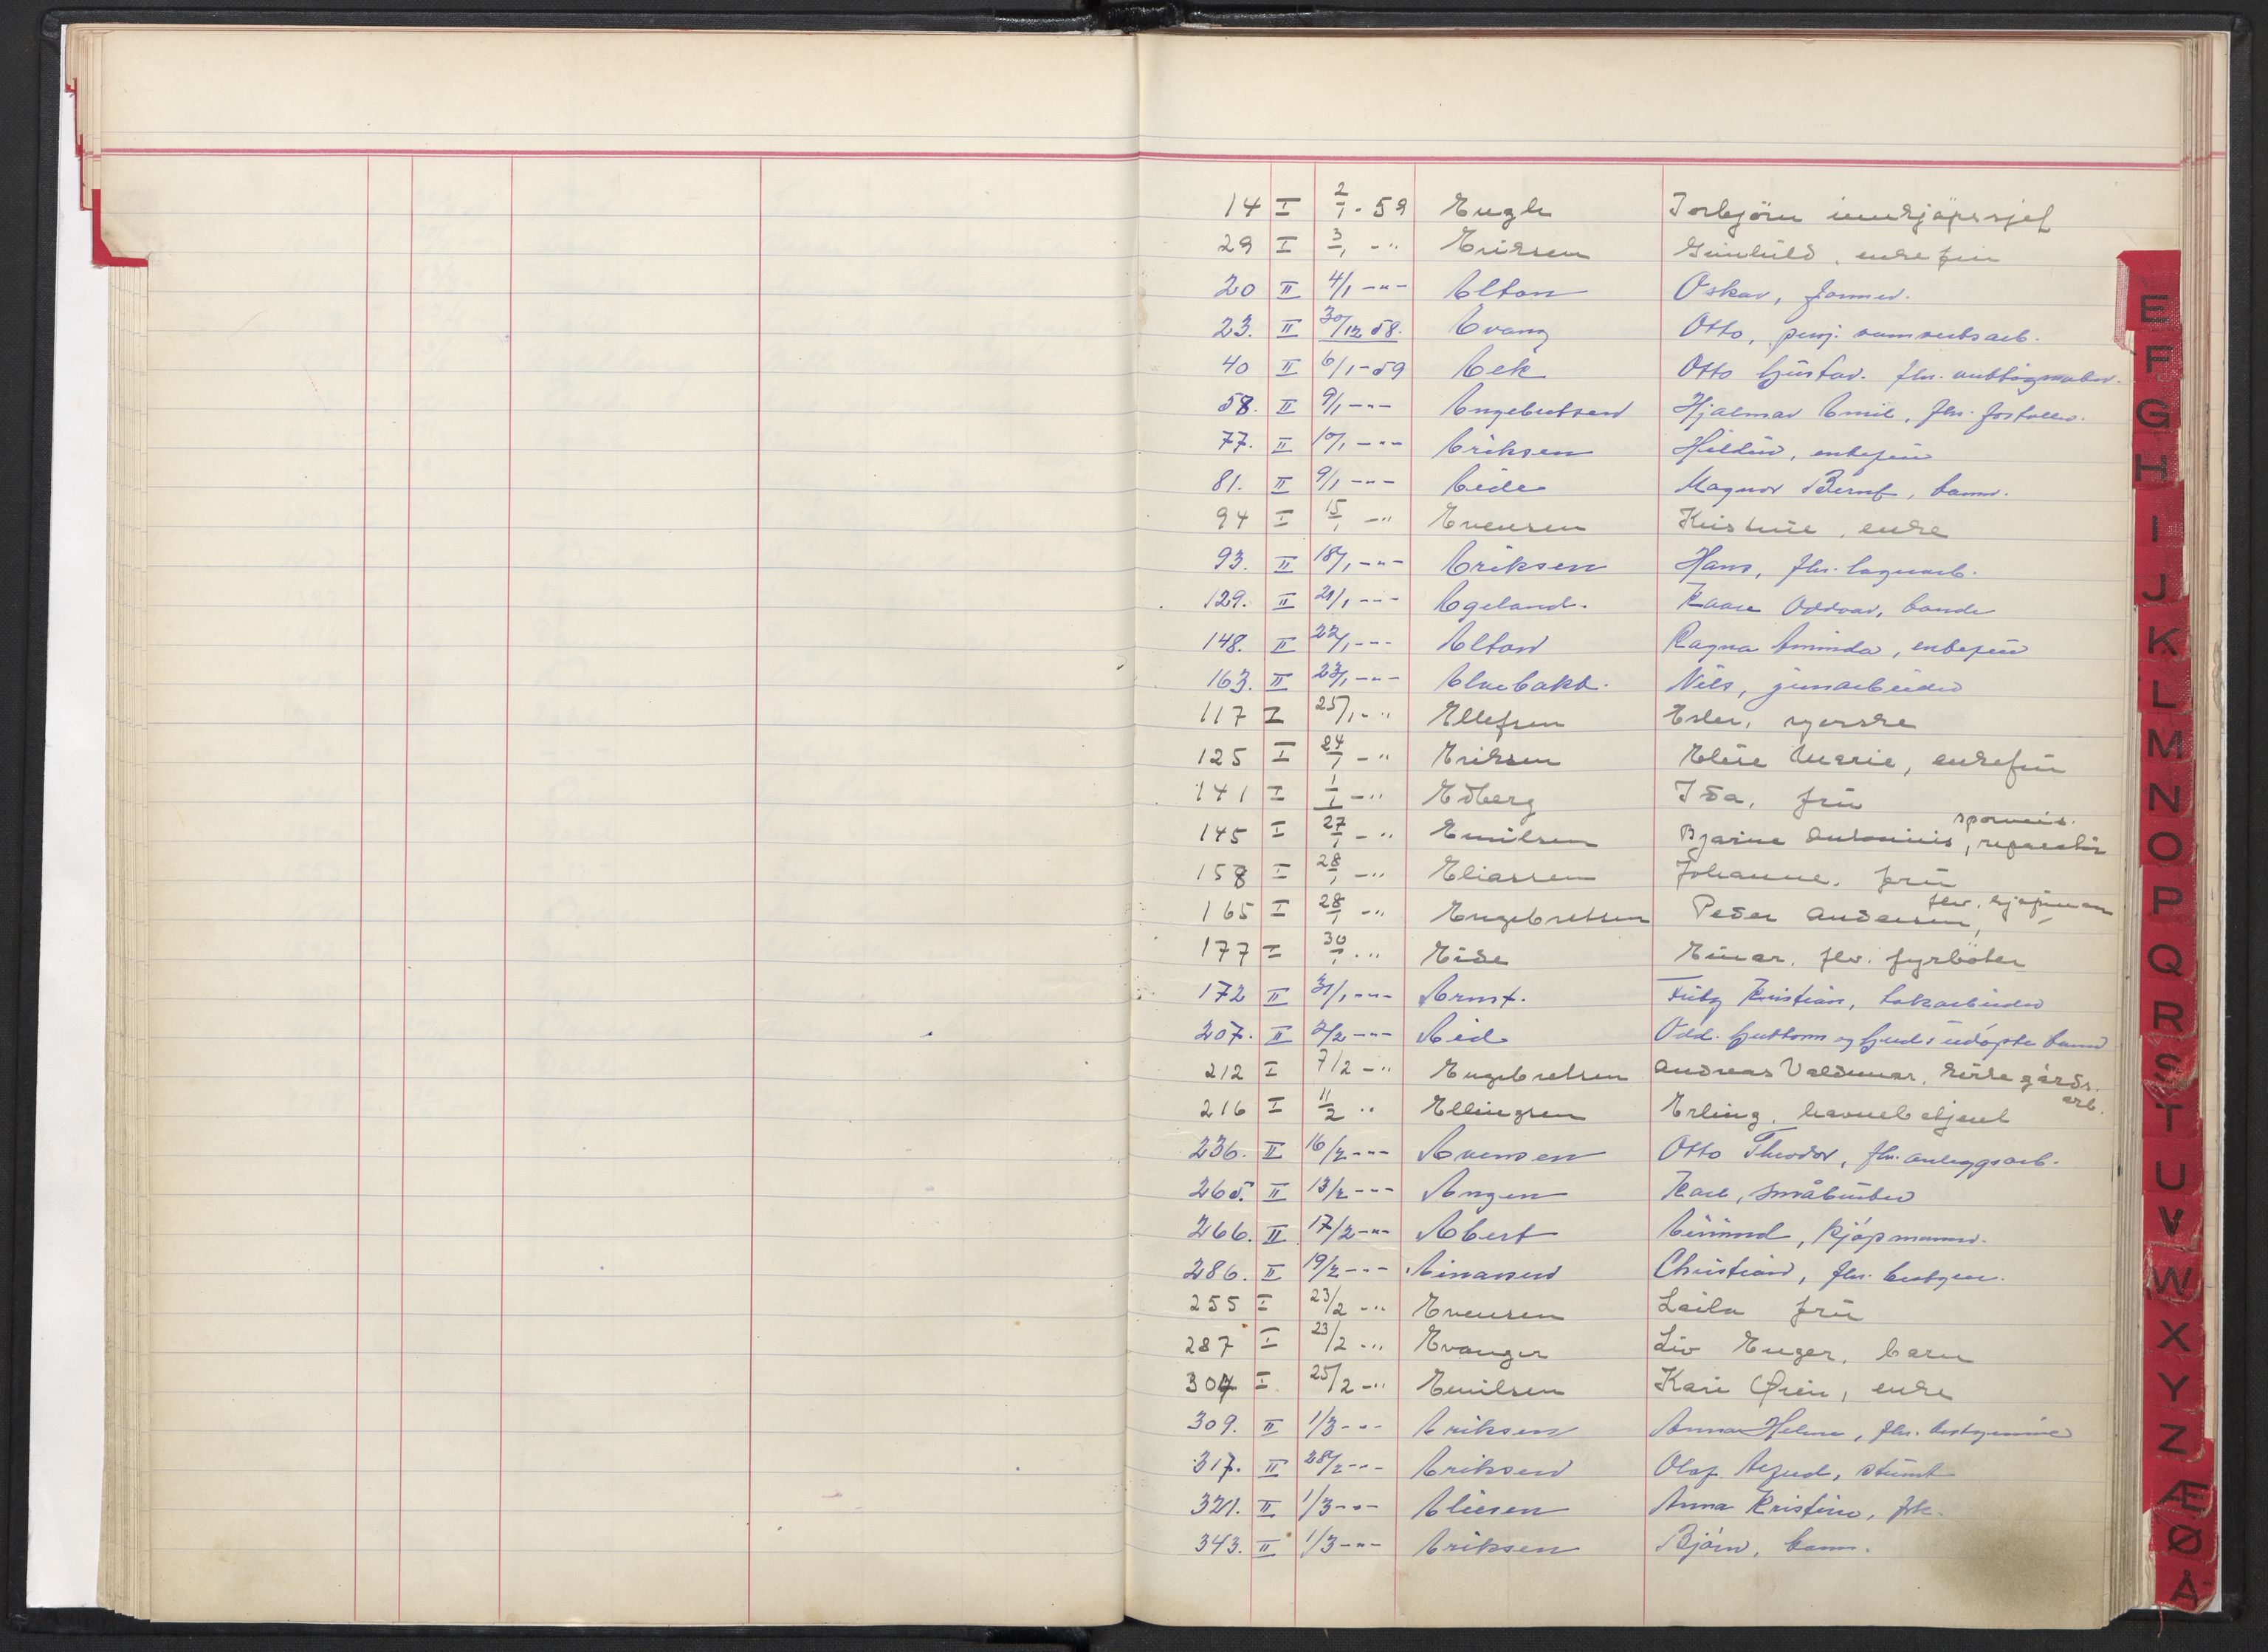 14 I 2/1 - 59 Engh Torbjörn innkjöpssjef
29 I 3/1 - " Eriksen Gunhild, enkefru
20 II 4/1 - " - Elton Oskar,
23. II 30/12 58. Evang Otto, pensj.
40 II 6/1 - 59 Eek Otto Gustav. fhv.
58. II 9/1 - " - Engebretsen Hjalmar Emil, fhv.
77. II 10/1 - " - Eriksen Hildur, enkefru
81. II 9/1 - " - Eide Magnor Bernt, barn.
94 I 15/1 - " Evensen Kristine, enke
93. II 18/1 - " - Eriksen Hans, fhv. lagerarb.
129. II 21/1 - " - Egeland. Kaare Oddvar, bonde
148. II 22/1 - " - Elton Ragna Aminda, enkefru
163. II 23/1 - " - Elvebakk. Nils, jernarbeider
117 I 25/1 - " Ellefsen Ester, syerske
125 I 24/1 - " Eriksen Elise Marie, enkefru
141 I 1/1 - " Edberg Ida, fru
145 I 27/1 - " Emilsen Bjarne Antonius, sporveis. reparatör
158 I 28/1 - " Eliassen Johanne. fru
165 I 28/1 - " Engebretsen Peder Andersen, fhv. kjöpmann
177 I 30/1 - " Eide Einar. fhv. fyrböter
172 II 31/1 - " - Ernst. Kristian,
207. II 2/2 - " - Eid Odd. Guttorm og Gerd's udöpte barn
212 I 7/2 - " Engebretsen Andreas Valdemar. kirkegårds. arb.
216 I 11/2 " Ellingsen Erling, havnebetjent
236. II 16/2 - " - Evensen Otto Theodor, fhv. anleggsarb.
265. II 13/2 - " - Engen Karl, småbruker
266. II 17/2 - " - Ebert Eivind, kjöpmann.
286. II 19/2 - " - Einarsen Christian, fhv. bestyrer.
255 I 23/2 - " Evensen Laila fru
287 I 23/2 - " Evanger Liv Enger, barn
304 I 25/2 - " Emilsen Kari Örin, enke
309. II 1/3 - " - Eriksen Anna Helene, fhv. bestyrerinne
317. II 28/2 - " - Eriksen Olaf
321. II 1/3 - " - Eliesen Anna Kristine, frk.
343. II 1/3 - " - Eriksen Björn, barn.
E
F
G
H
I
J
K
L
M
N
O
P
Q
R
S
T
U
V
W
X
Y
Z
Æ
Ø
Å